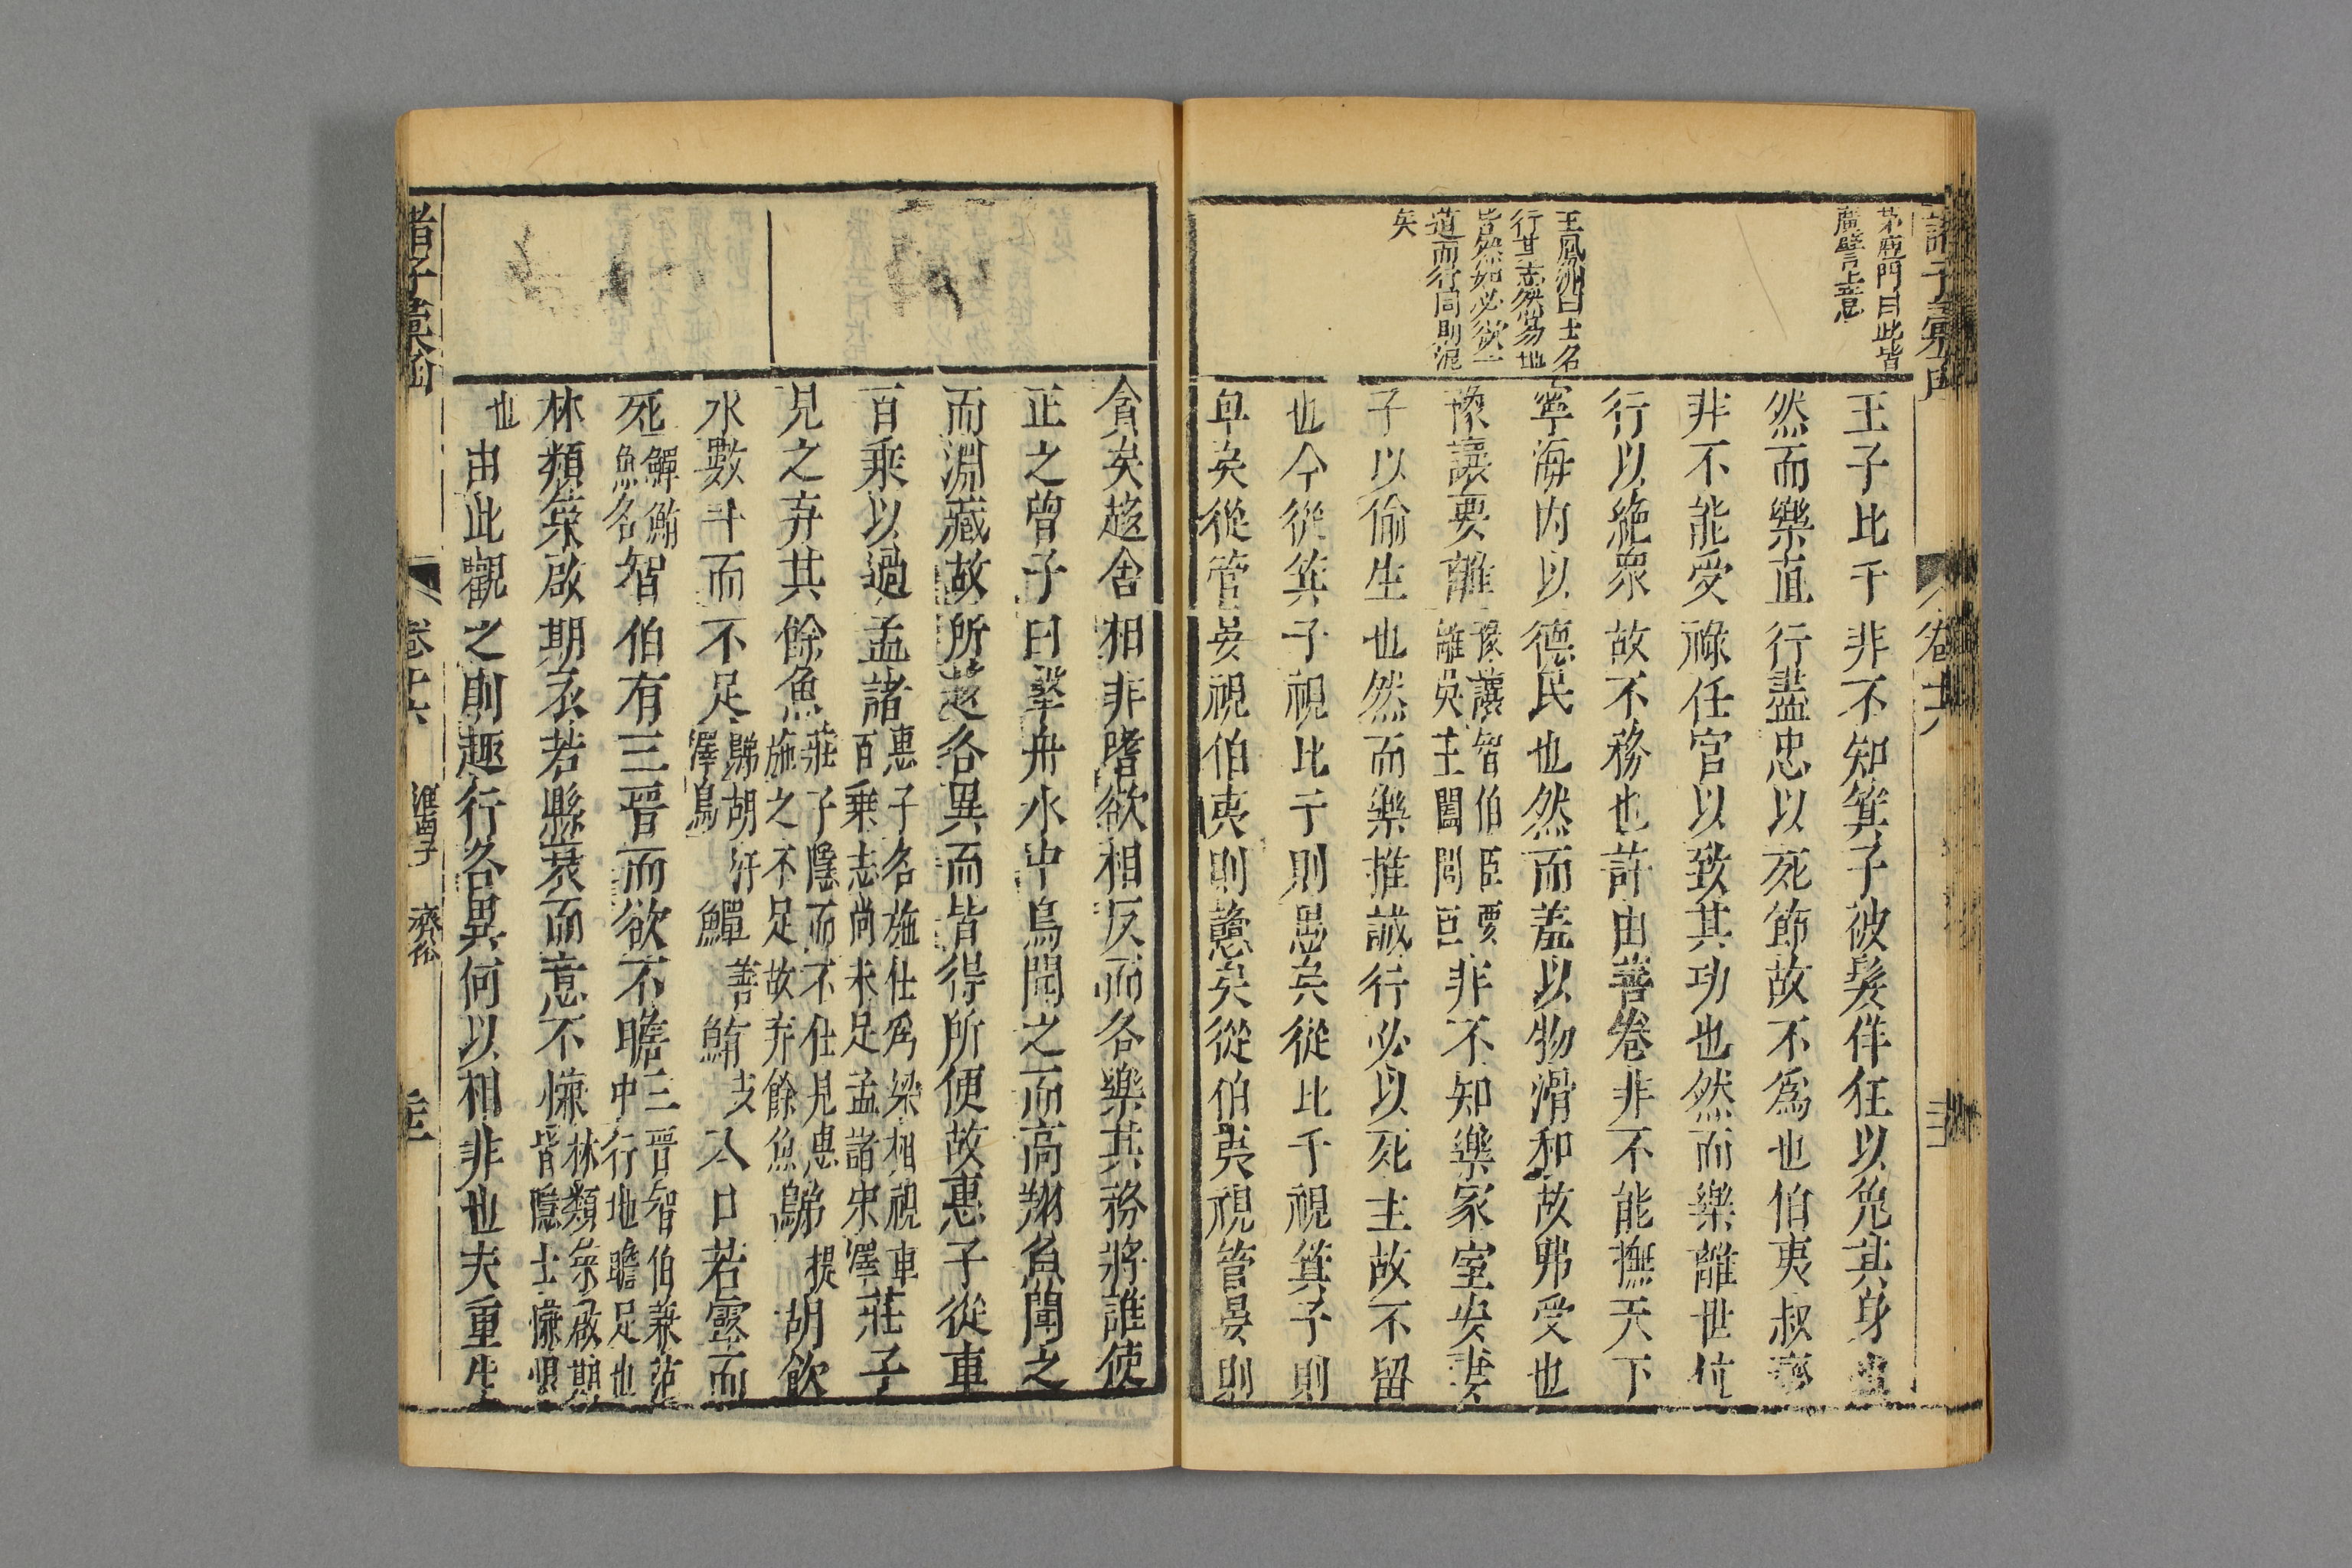 茅鹿門曰此皆
廣譬上意
王鳳洲曰士名
行其志然易地
皆然如必欲一
道而行同則泥
矣
王子比干非不知箕子被髮佯狂以免其身也
然而樂直行盡忠以死節故不為也伯夷叔齊
非不能受祿任官以致其功也然而樂離世伉
行以絶眾故不務也許由善卷非不能撫天下
寧海内以德民也然而羞以物滑和故弗受也
豫讓要離
豫讓智伯臣要
離吳王闔閭臣
非不知樂家室安妻
子以偷生也然而樂推誠行必以死主故不留
也今從箕子視比干則愚矣從比干視箕子則
卑矣從管晏視伯夷則戇矣從伯夷視管晏則
貪矣趍舍相非嗜欲相反而各樂其務將誰使
正之曾子曰擊舟水中鳥聞之而高翔魚聞之
而淵藏故所趍各異而皆得所便故惠子從車
百乘以過孟諸
惠子名施仕為梁相視車
百乘志尚未足孟諸宋澤
莊子
見之弃其餘魚
莊子隱而不仕見惠
施之不足故弃餘魚
鵜
提
胡飲
水數斗而不足
鵜胡汙
澤鳥
鱓
善
鮪
入口若露而
死
鱓鮪
魚名
智伯有三晉而欲不贍
三晉智伯兼范
中行地贍足也
林類榮啟期衣若縣衰而意不慊
林類榮啟期
皆隱士慊恨
也
由此觀之則趣行各異何以相非也夫重生
卷十六
齊俗